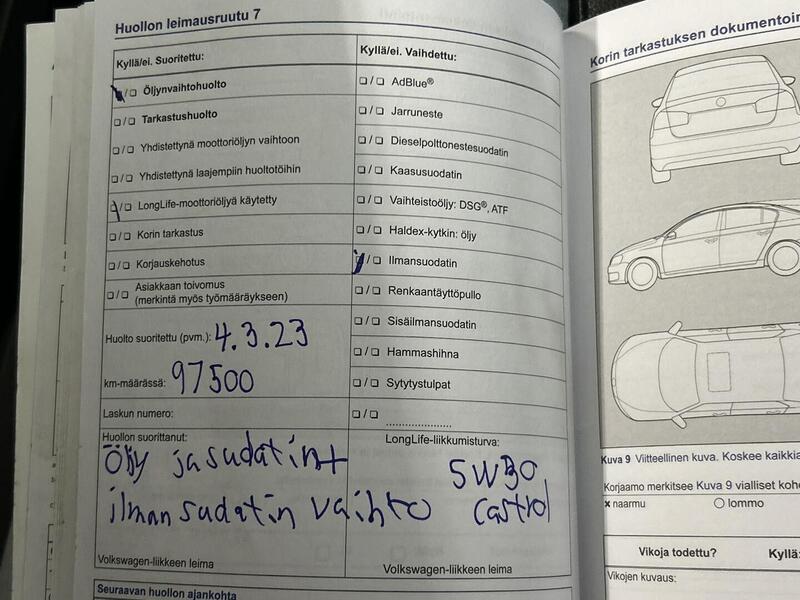 Huollon leimausruutu 7
Kyllä/ei. Suoritettu:
☐/☐ Öljynvaihtohuolto
☐/☐ Tarkastushuolto
Yhdistettynä moottoriöljyn vaihtoon
☐/☐ Yhdistettynä laajempiin huoltotöihin
☐/☐ LongLife-moottoriöljyä käytetty
☐/☐ Korin tarkastus
☐/☐ Korjauskehotus
☐/☐ Asiakkaan toivomus
(merkintä myös työmääräykseen)
Huolto suoritettu (pvm.): 4.3.23
km-määrässä: 97500
Laskun numero:
Huollon suorittanut:
Öljy ja sudatint
ilman sudatin vaihto
Volkswagen-liikkeen leima
Kyllä/ei. Vaihdettu:
☐/☐ AdBlue®
☐/☐ Jarruneste
☐/☐ Dieselpolttonestesuodatin
☐/☐ Kaasusuodatin
☐/☐ Vaihteistoöljy: DSG®, ATF
☐/☐ Haldex-kytkin: öljy
☐/☐ Ilmansuodatin
☐/☐ Renkaantäyttöpullo
☐/☐ Sisäilmansuodatin
☐/☐ Hammashihna
☐/☐ Sytytystulpat
☐/☐ ....................
LongLife-liikkumisturva:
5W30
Castrol
Volkswagen-liikkeen leima
Seuraavan huollon ajankohta
Korin tarkastuksen dokumentoin
Kuva 9 Viitteellinen kuva. Koskee kaikkia
Korjaamo merkitsee Kuva 9 vialliset kohd
× naarmu ○ lommo
Vikoja todettu? Kyllä:
Vikojen kuvaus: